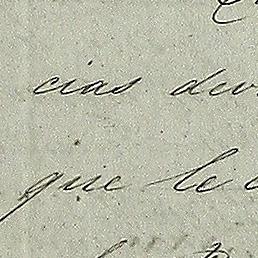 cias dev
que le